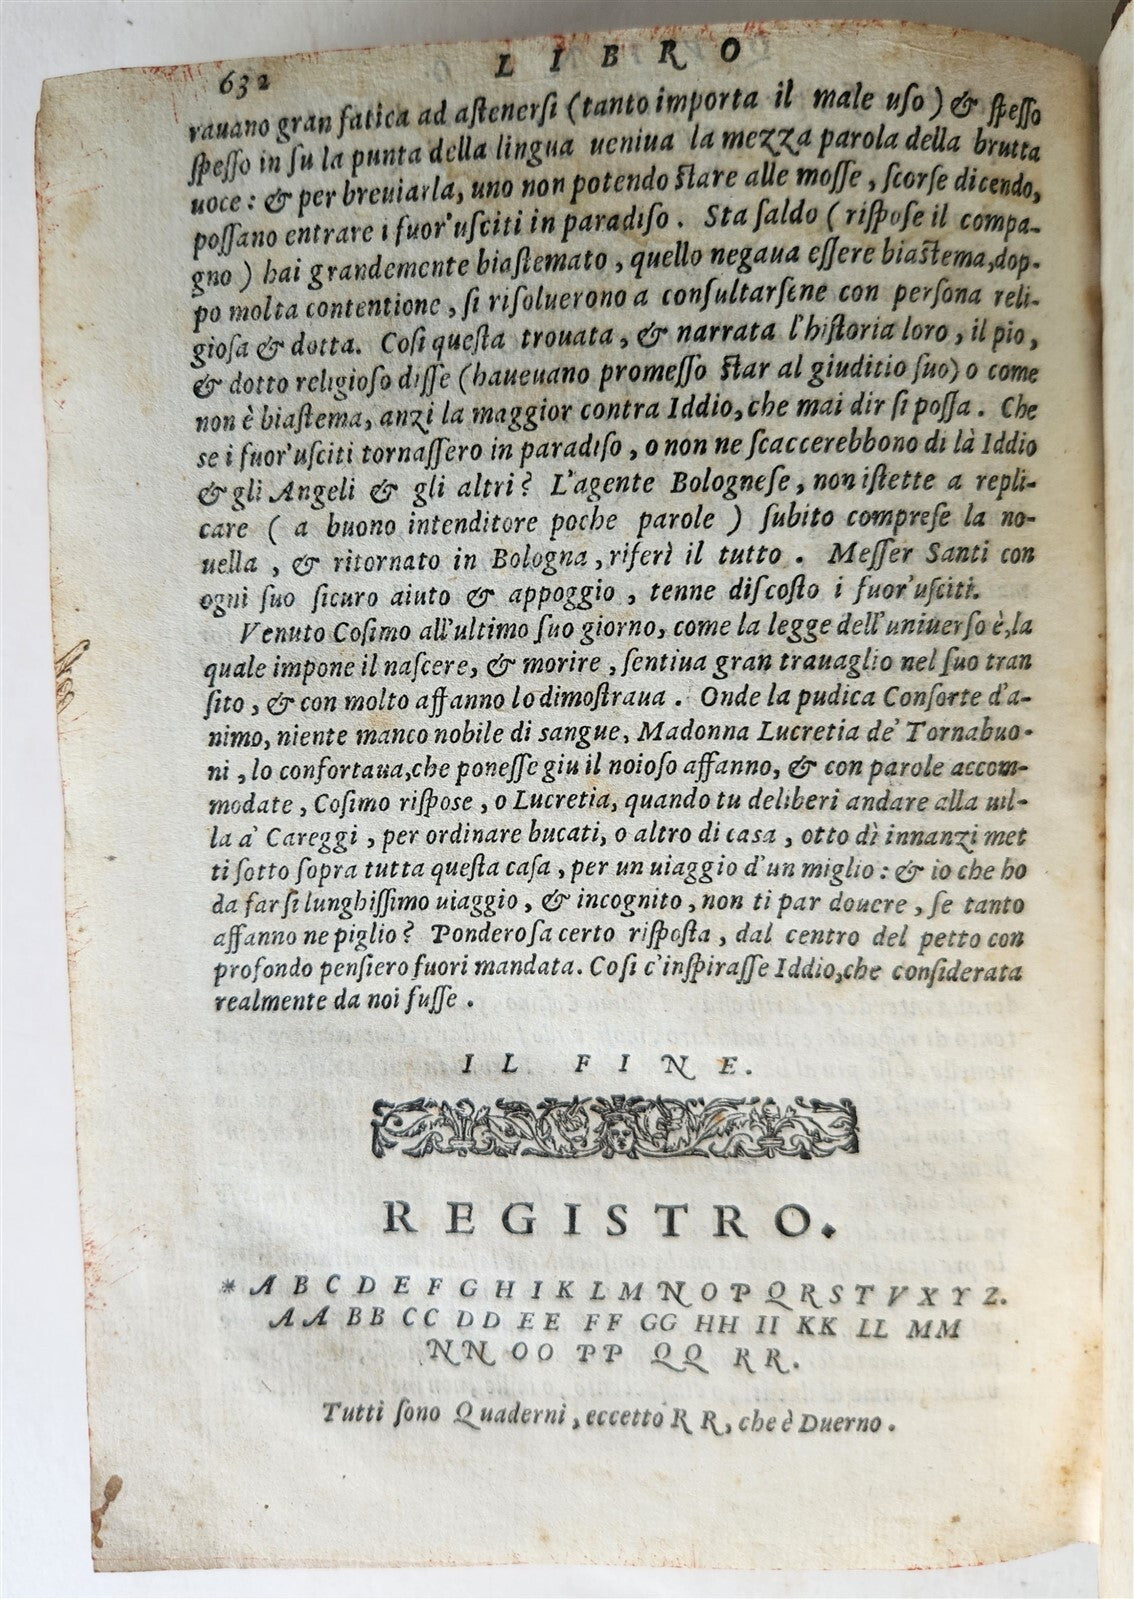 632
LIBRO
rauano gran fatica ad astenersi (tanto importa il male uso) & spesso
spesso in su la punta della lingua ueniua la mezza parola della brutta
uoce: & per breuiarla, uno non potendo stare alle mosse, scorse dicendo,
possano entrare i fuor'usciti in paradiso. Sta saldo (rispose il compa-
gno) hai grandemente biastemato, quello negaua essere biastema, dop-
po molta contentione, si risoluerono a consultarsene con persona reli-
giosa & dotta. Cosi questa trouata, & narrata l'historia loro, il pio,
& dotto religioso disse (haueuano promesso star al giuditio suo) o come
non è biastema, anzi la maggior contra Iddio, che mai dir si possa. Che
se i fuor'usciti tornassero in paradiso, o non ne scaccerebbono di là Iddio
& gli Angeli & gli altri? L'agente Bolognese, non istette a repli-
care (a buono intenditore poche parole) subito comprese la no-
uella, & ritornato in Bologna, riferì il tutto. Messer Santi con
ogni suo sicuro aiuto & appoggio, tenne discosto i fuor'usciti.
Venuto Cosimo all'ultimo suo giorno, come la legge dell'uniuerso è, la
quale impone il nascere, & morire, sentiua gran trauaglio nel suo tran
sito, & con molto affanno lo dimostraua. Onde la pudica Consorte d'a-
nimo, niente manco nobile di sangue, Madonna Lucretia de' Tornabuo-
ni, lo confortaua, che ponesse giu il noioso affanno, & con parole accom-
modate, Cosimo rispose, o Lucretia, quando tu deliberi andare alla uil-
la a' Careggi, per ordinare bucati, o altro di casa, otto dì innanzi met
ti sotto sopra tutta questa casa, per un uiaggio d'un miglio: & io che ho
da far si lunghissimo uiaggio, & incognito, non ti par douere, se tanto
affanno ne piglio? Ponderosa certo risposta, dal centro del petto con
profondo pensiero fuori mandata. Cosi c'inspirasse Iddio, che considerata
realmente da noi fusse.
IL FINE.
REGISTRO.
* A B C D E F G H I K L M N O P Q R S T V X Y Z.
AA BB CC DD EE FF GG HH II KK LL MM
NN OO PP QQ RR.
Tutti sono Quaderni, eccetto RR, che è Duerno.